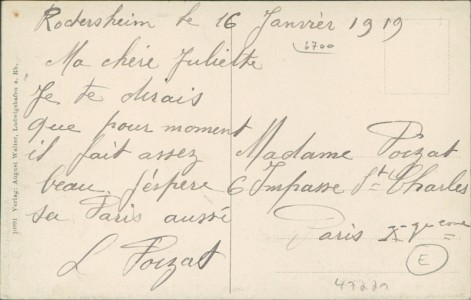 Rodersheim le 16 Janvrèr 1919
6700
Ma chère Juliette
Je te dirais
que pour moment
il fait assez
beau. J'éspere
sa Paris aussé
L Poizat
Madame Poizat
6 Impasse St Charles
Paris Xe
E
47221
Verlag: August Walter, Ludwigshafen a. Rh.